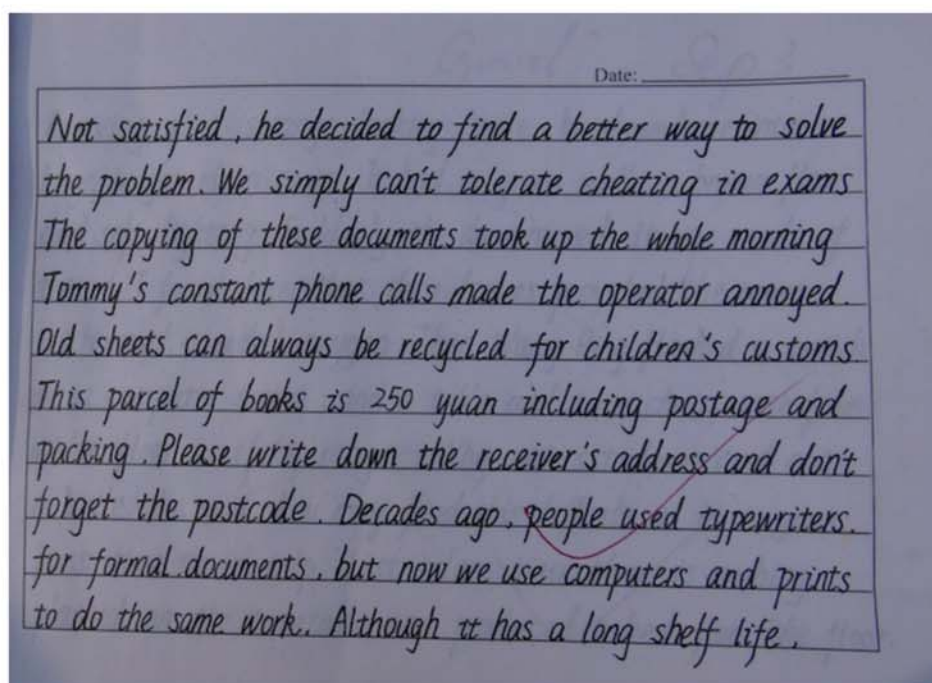 Date:
Not satisfied, he decided to find a better way to solve
the problem. We simply can't tolerate cheating in exams
The copying of these documents took up the whole morning
Tommy's constant phone calls made the operator annoyed.
Old sheets can always be recycled for children's customs
This parcel of books is 250 yuan including postage and
packing. Please write down the receiver's address and don't
forget the postcode. Decades ago, people used typewriters.
for formal documents, but now we use computers and prints
to do the same work. Although it has a long shelf life,